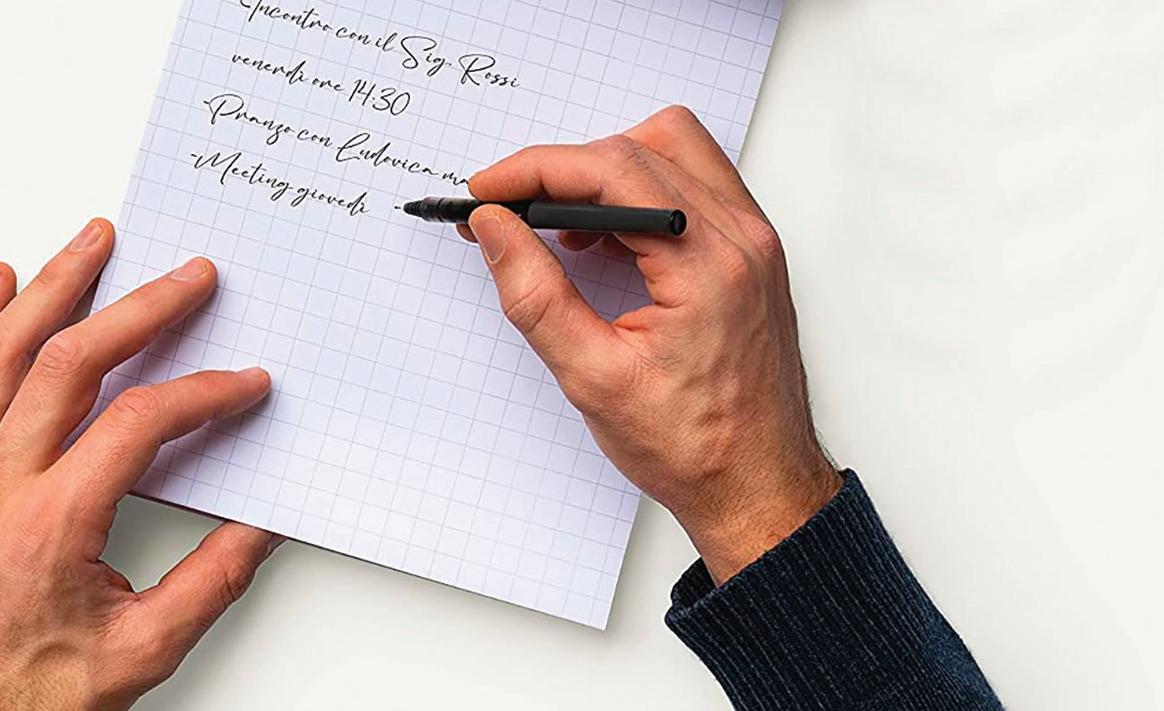 -Incontro con il Sig. Rossi
venerdì ore 14:30
-Pranzo con Ludovica
-Meeting giovedì -